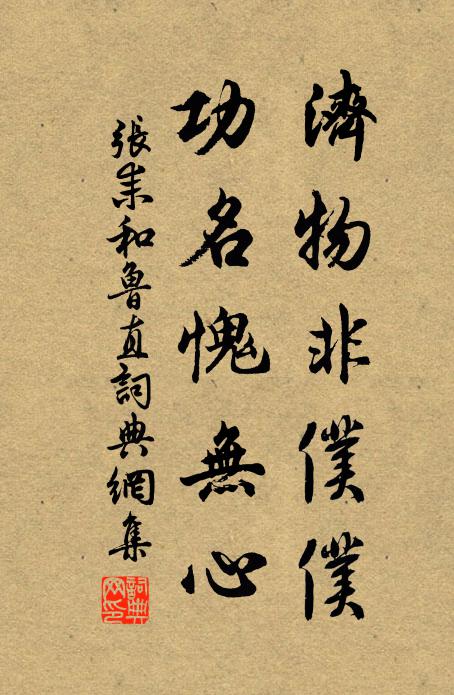 濟物非僕僕
功名愧無心
張耒和魯直詞典網集
詞典网印